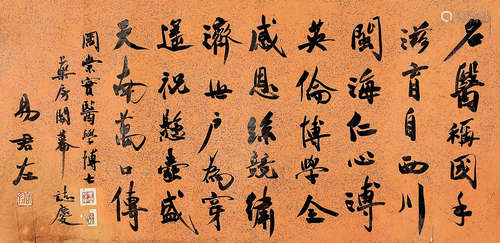 名醫稱國手
滋育自西川
閩海仁心溥
英倫博學全
感恩絲競繡
濟世戶為穿
遙祝懸壺盛
天南萬口傳
周崇實醫學博士
藥房開幕誌慶
易君左